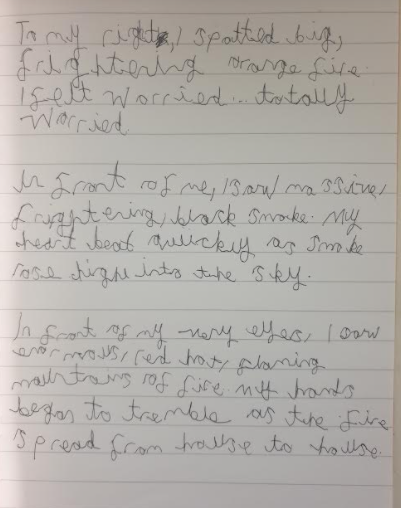 To my right, I spotted big,
frightening orange fire.
I felt worried... totally
worried.
In front of me, I saw massive,
frightening, black smoke. My
heart beat quickly as smoke
rose high into the sky.
In front of my very eyes, I saw
enormous, red hot, flaming
mountains of fire. My hands
began to tremble as the fire
spread from house to house.